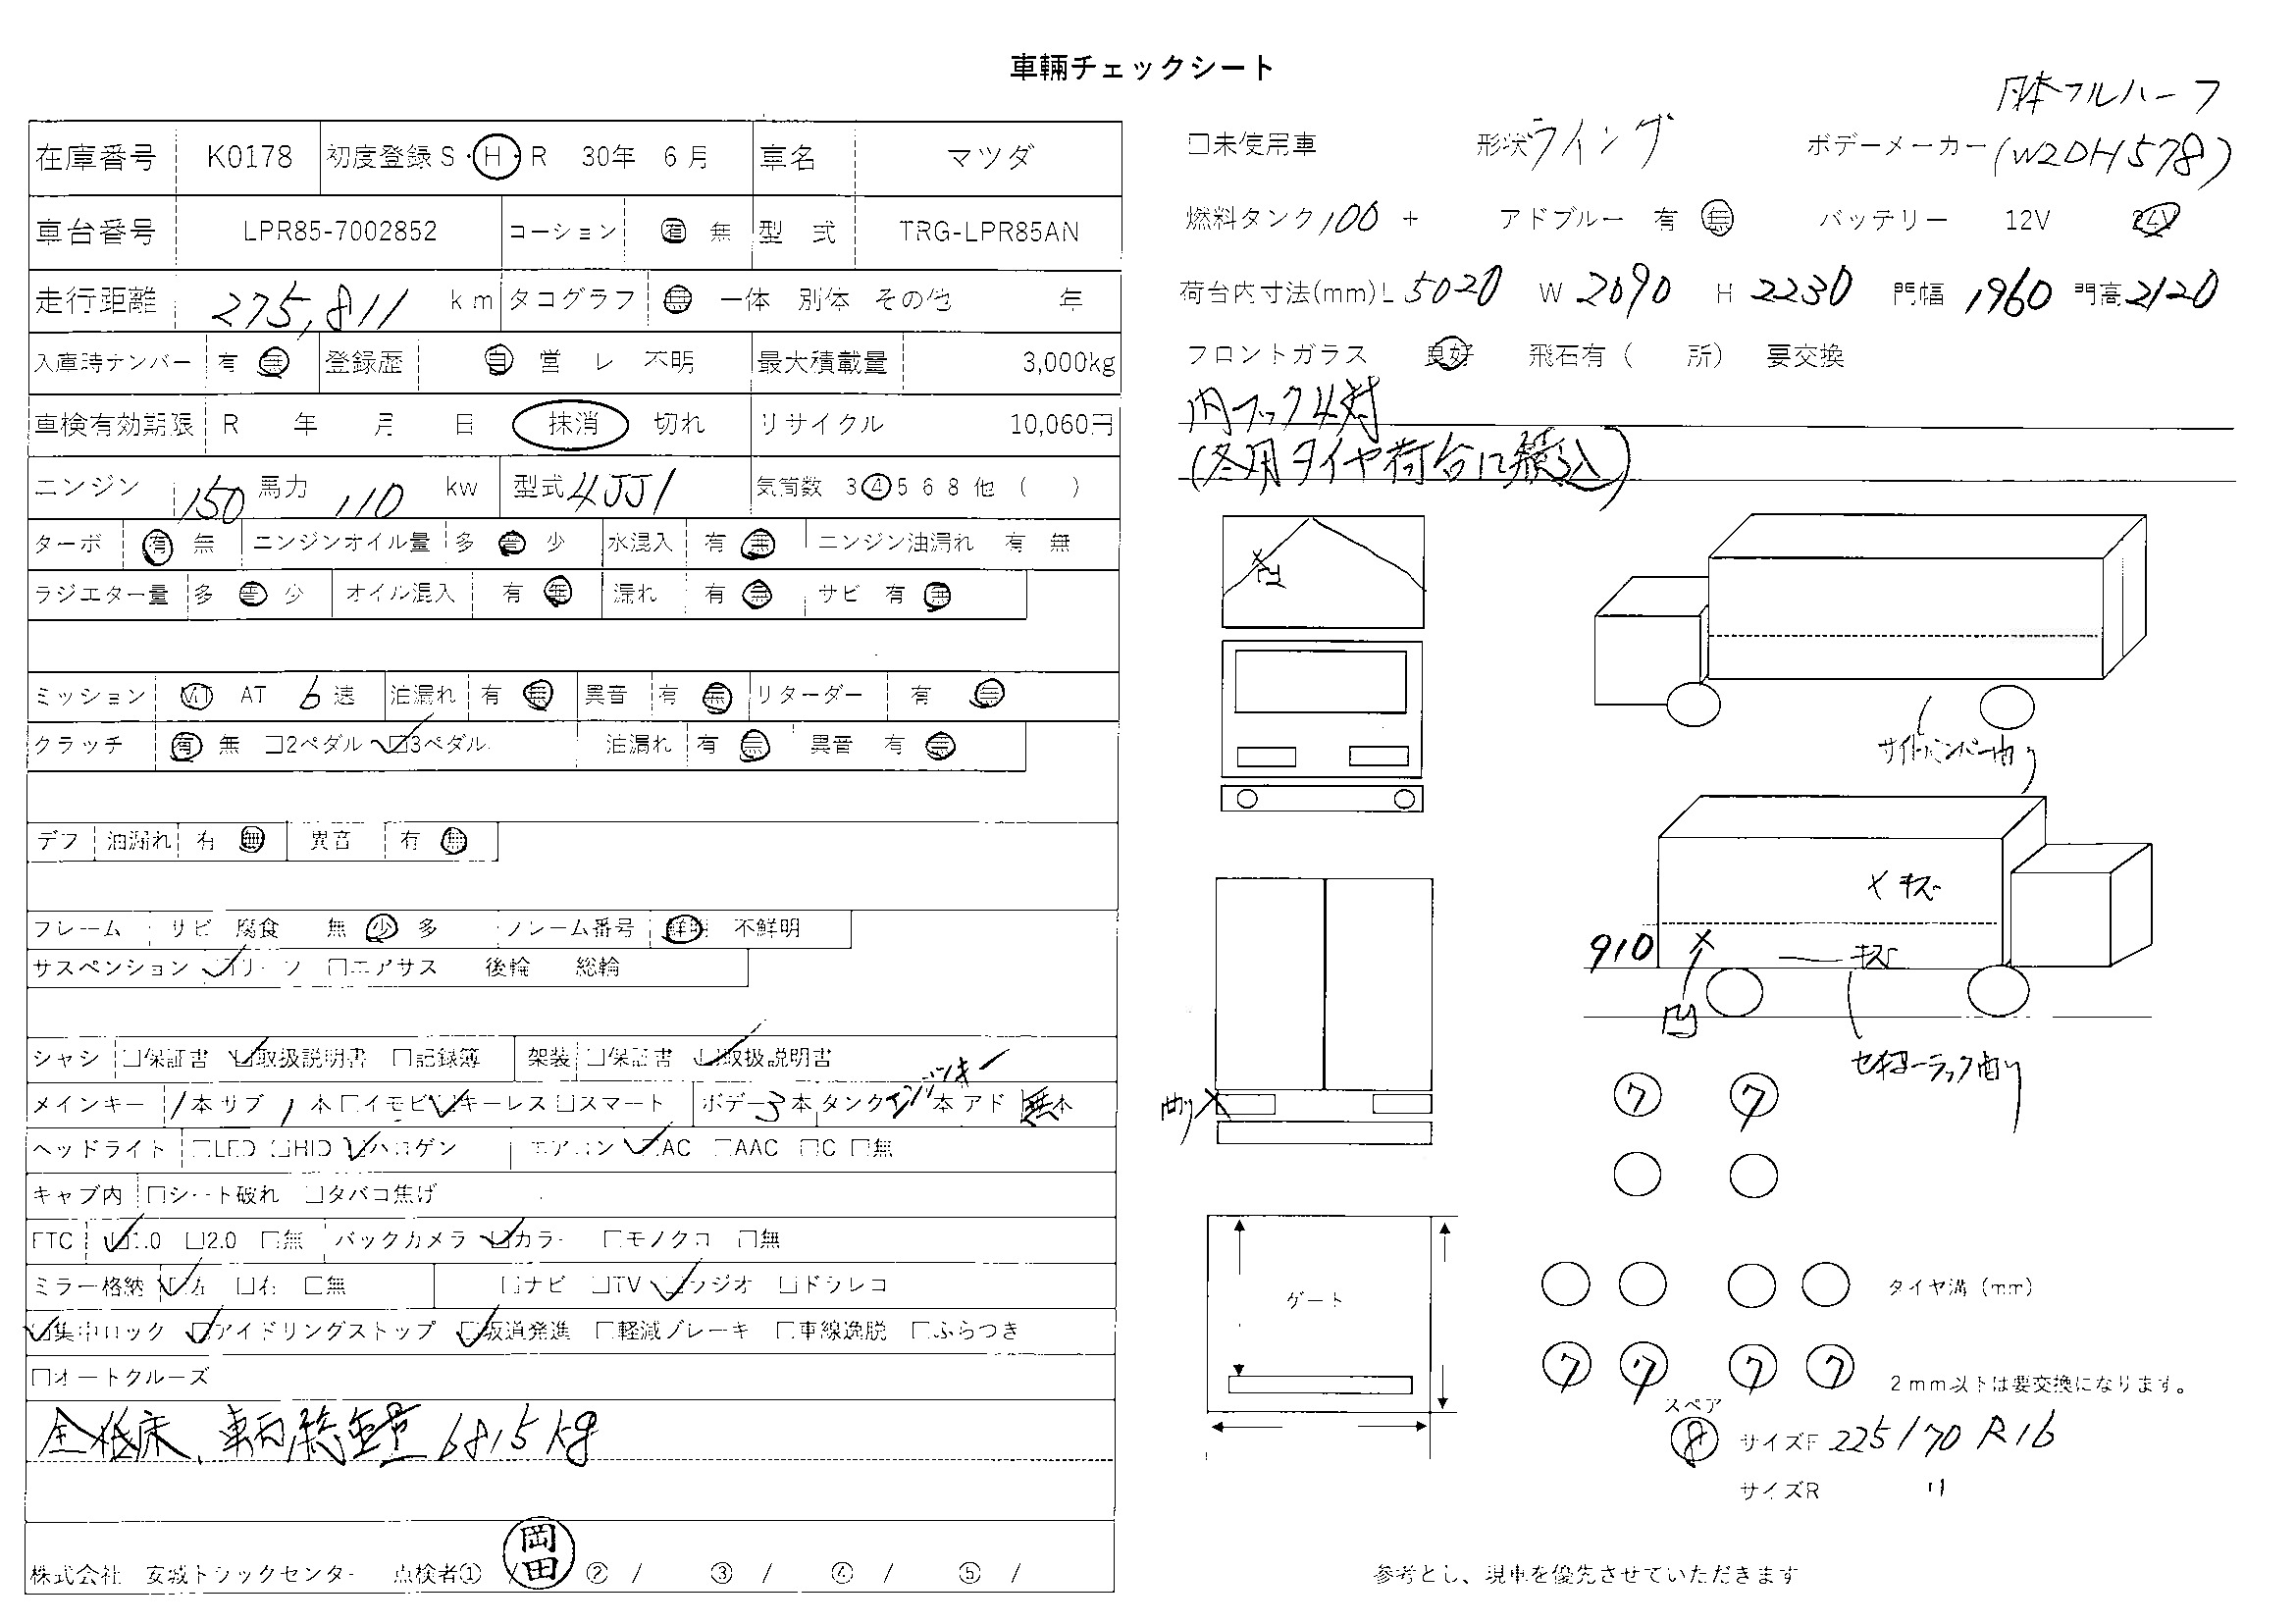 車輌チェックシート
在庫番号 K0178 初度登録 S・H・R 30年 6月 車名 マツダ
車台番号 LPR85-7002852 コーション 有 無 型式 TRG-LPR85AN
走行距離 275,811 km タコグラフ 無 一体 別体 その他 年
入庫時ナンバー 有 無 登録歴 自 営 レ 不明 最大積載量 3,000kg
車検有効期限 R 年 月 日 抹消 切れ リサイクル 10,060円
エンジン 150 馬力 110 kw 型式 4JJ1 気筒数 3 4 5 6 8 他 ( )
ターボ 有 無 エンジンオイル量 多 普 少 水混入 有 無 エンジン油漏れ 有 無
ラジエター量 多 普 少 オイル混入 有 無 漏れ 有 無 サビ 有 無
ミッション MT AT 6 速 油漏れ 有 無 異音 有 無 リターダー 有 無
クラッチ 有 無 □2ペダル □3ペダル 油漏れ 有 無 異音 有 無
デフ 油漏れ 有 無 異音 有 無
フレーム サビ 腐食 無 少 多 フレーム番号 鮮明 不鮮明
サスペンション □リーフ □エアサス 後輪 総輪
シャシ □保証書 □取扱説明書 □記録簿 架装 □保証書 □取扱説明書
メインキー 1 本 サブ 1 本 □イモビ □キーレス □スマート ボデー 3 本 タンク エンジンキー 本 アド 無 本
ヘッドライト □LED □HID □ハロゲン エアコン □AC □AAC □C □無
キャブ内 □シート破れ □タバコ焦げ
ETC □1.0 □2.0 □無 バックカメラ □カラー □モノクロ □無
ミラー格納 □左 □右 □無 □ナビ □TV □ラジオ □ドラレコ
□集中ロック □アイドリングストップ □坂道発進 □軽減ブレーキ □車線逸脱 □ふらつき
□オートクルーズ
全低床、車両総重量 6815kg
株式会社 安城トラックセンター 点検者① / 岡田 ② / ③ / ④ / ⑤ /
日本フルハーフ
□未使用車 形状 ウイング ボデーメーカー (W2DH578)
燃料タンク 100 + アドブルー 有 無 バッテリー 12V 24V
荷台内寸法(mm) L 5020 W 2090 H 2230 門幅 1960 門高 2120
フロントガラス 良好 飛石有 ( 所) 要交換
内フック4対
(冬用タイヤ荷台に積込)
凹
サイドバンパー曲り
×キズ
910
キズ
凹
セイコーラック曲り
曲り
7 7
ゲート
タイヤ溝 (mm)
7 7 7 7
2mm以下は要交換になります。
スペア
8 サイズF 225/70 R16
サイズR 〃
参考とし、現車を優先させていただきます